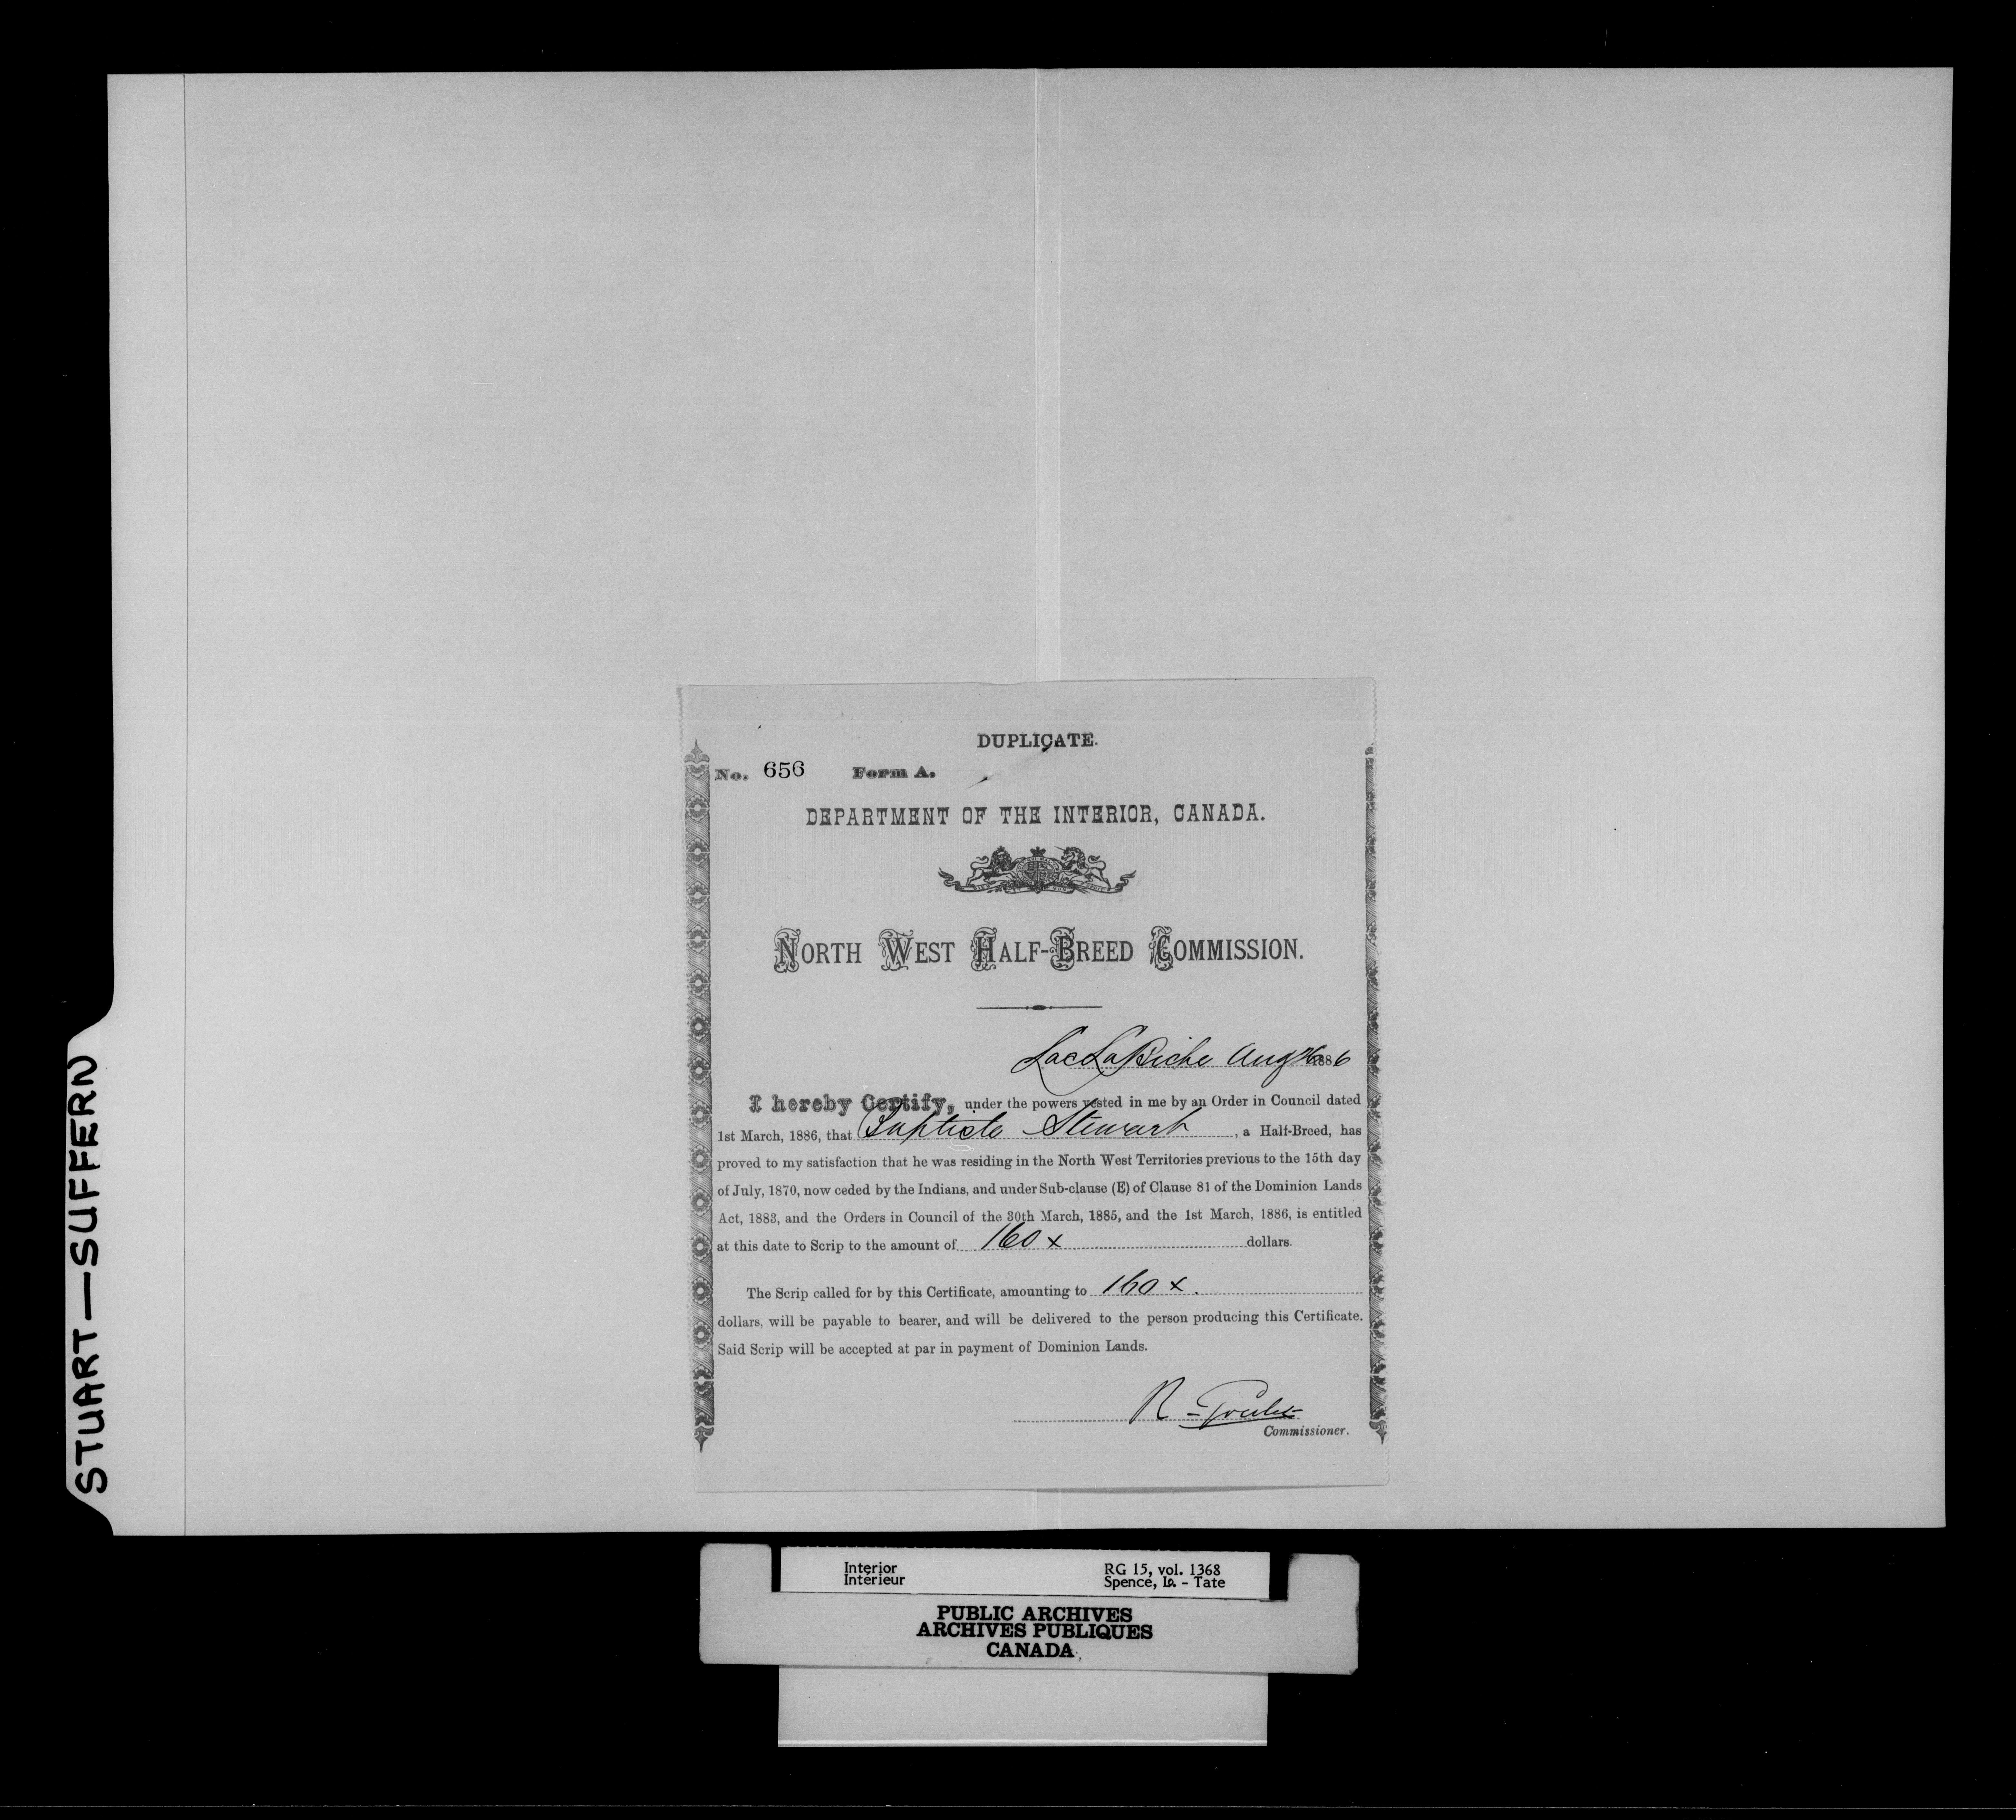 DUPLICATE.
No. 656 Form A.
DEPARTMENT OF THE INTERIOR, CANADA.
NORTH WEST HALF-BREED COMMISSION.
Lac La Biche Aug 1886
I hereby Certify, under the powers vested in me by an Order in Council dated
1st March, 1886, that Baptiste Stewart, a Half-Breed, has
proved to my satisfaction that he was residing in the North West Territories previous to the 15th day
of July, 1870, now ceded by the Indians, and under Sub-clause (E) of Clause 81 of the Dominion Lands
Act, 1883, and the Orders in Council of the 30th March, 1885, and the 1st March, 1886, is entitled
at this date to Scrip to the amount of 160 x dollars.
The Scrip called for by this Certificate, amounting to 160 x.
dollars, will be payable to bearer, and will be delivered to the person producing this Certificate.
Said Scrip will be accepted at par in payment of Dominion Lands.
R Goulet
Commissioner.
STUART—SUFFERN
Interior RG 15, vol. 1368
Intérieur Spence, Ia. - Tate
PUBLIC ARCHIVES
ARCHIVES PUBLIQUES
CANADA